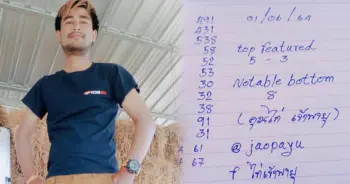 491
431
538
58
52
53
30
32
38
91
31
61
67
01/06/64
top featured
5 - 3
Notable bottom
8
(คุณไก่ เจ้าพายุ)
@ jaopayu
f ไก่ เจ้าพายุ